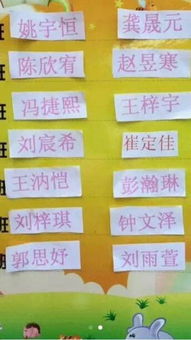 姚宇恒 龚晟元
班 陈欣宥 赵昱寒
班 冯捷熙 王梓宇
班 刘宸希 崔定佳
王汭恺 彭瀚琳
班 刘梓琪 钟文泽
班 郭思妤 刘雨萱